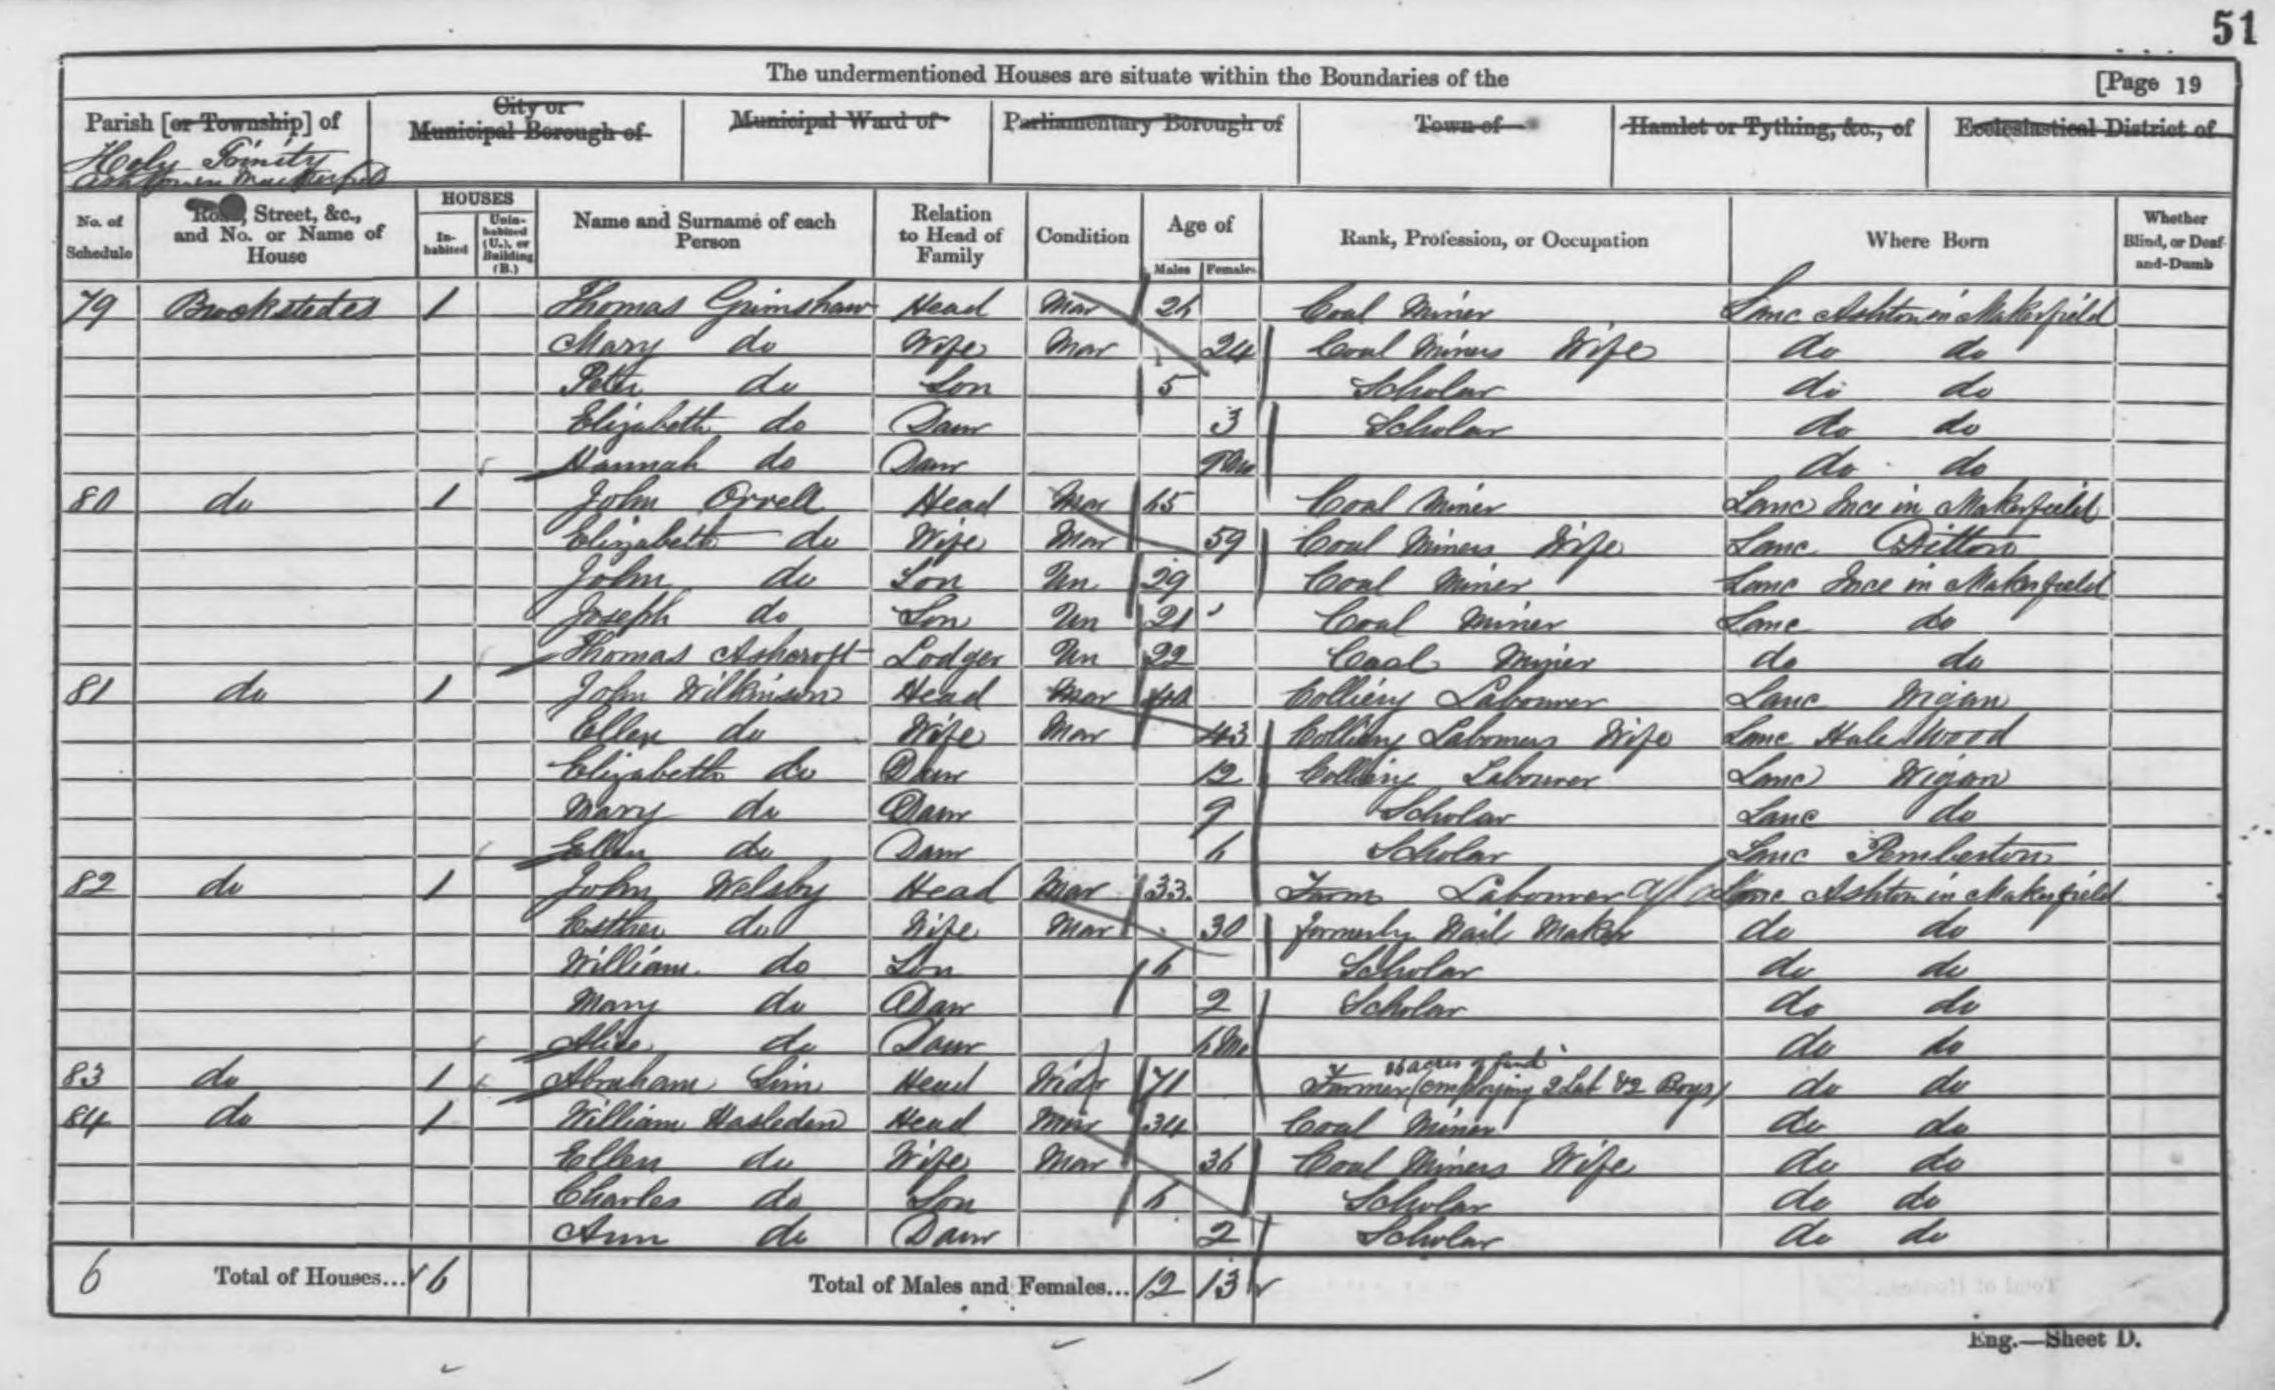 51
The undermentioned Houses are situate within the Boundaries of the [Page 19
Parish [or Township] of City or Municipal Borough of Municipal Ward of Parliamentary Borough of Town of Hamlet or Tything, &c., of Ecclesiastical District of
Holy Trinity
No. of Schedule Road, Street, &c., and No. or Name of House HOUSES Inhabited Uninhabited (U.), or Building (B.) Name and Surname of each Person Relation to Head of Family Condition Age of Males Females Rank, Profession, or Occupation Where Born Whether Blind, or Deaf-and-Dumb
79 1 Thomas Grimshaw Head Mar 26 Coal Miner Lanc Ashton in Makerfield
Mary do Wife Mar 24 Coal Miners Wife do do
Peter do Son 5 Scholar do do
Elizabeth do Daur 3 Scholar do do
Hannah do Daur 9 Mo do do
80 do 1 John Orrell Head Mar 65 Coal Miner Lanc Ince in Makerfield
Elizabeth do Wife Mar 59 Coal Miners Wife Lanc Ditton
John do Son Un 29 Coal Miner Lanc Ince in Makerfield
Joseph do Son Un 21 Coal Miner Lanc do
Thomas Ashcroft Lodger Un 22 Coal Miner do do
81 do 1 John Wilkinson Head Mar Colliery Labourer Lanc Wigan
Ellen do Wife Mar 43 Colliery Labourers Wife Lanc Hale Wood
Elizabeth do Daur 12 Colliery Labourer Lanc Wigan
Mary do Daur 9 Scholar Lanc do
Ellen do Daur 6 Scholar Lanc Pemberton
82 do 1 John Welsby Head Mar 33 Farm Labourer Lanc Ashton in Makerfield
Esther do Wife Mar 30 formerly Nail Maker do do
William do Son 6 Scholar do do
Mary do Daur 2 Scholar do do
Alice do Daur 6 Mo do do
83 do 1 Abraham Sim Head Widr 71 Farmer acres of land (employing 2 Lab & 2 Boys) do do
84 do 1 William Hasleden Head Mar 34 Coal Miner do do
Ellen do Wife Mar 36 Coal Miners Wife do do
Charles do Son 6 Scholar do do
Ann do Daur 2 Scholar do do
6 Total of Houses... 6 Total of Males and Females... 12 13
Eng.—Sheet D.